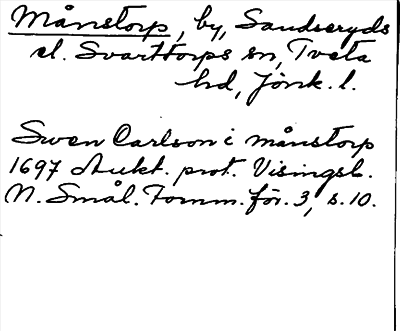 Månstorp, by, Sandseryds
el. Svarttorps sn, Tveta
hd, Jönk. l.
Swen Carlson i månstorp
1697 Aukt. prot. Visingsb.
N. Smål. Fornm. för. 3, s. 10.